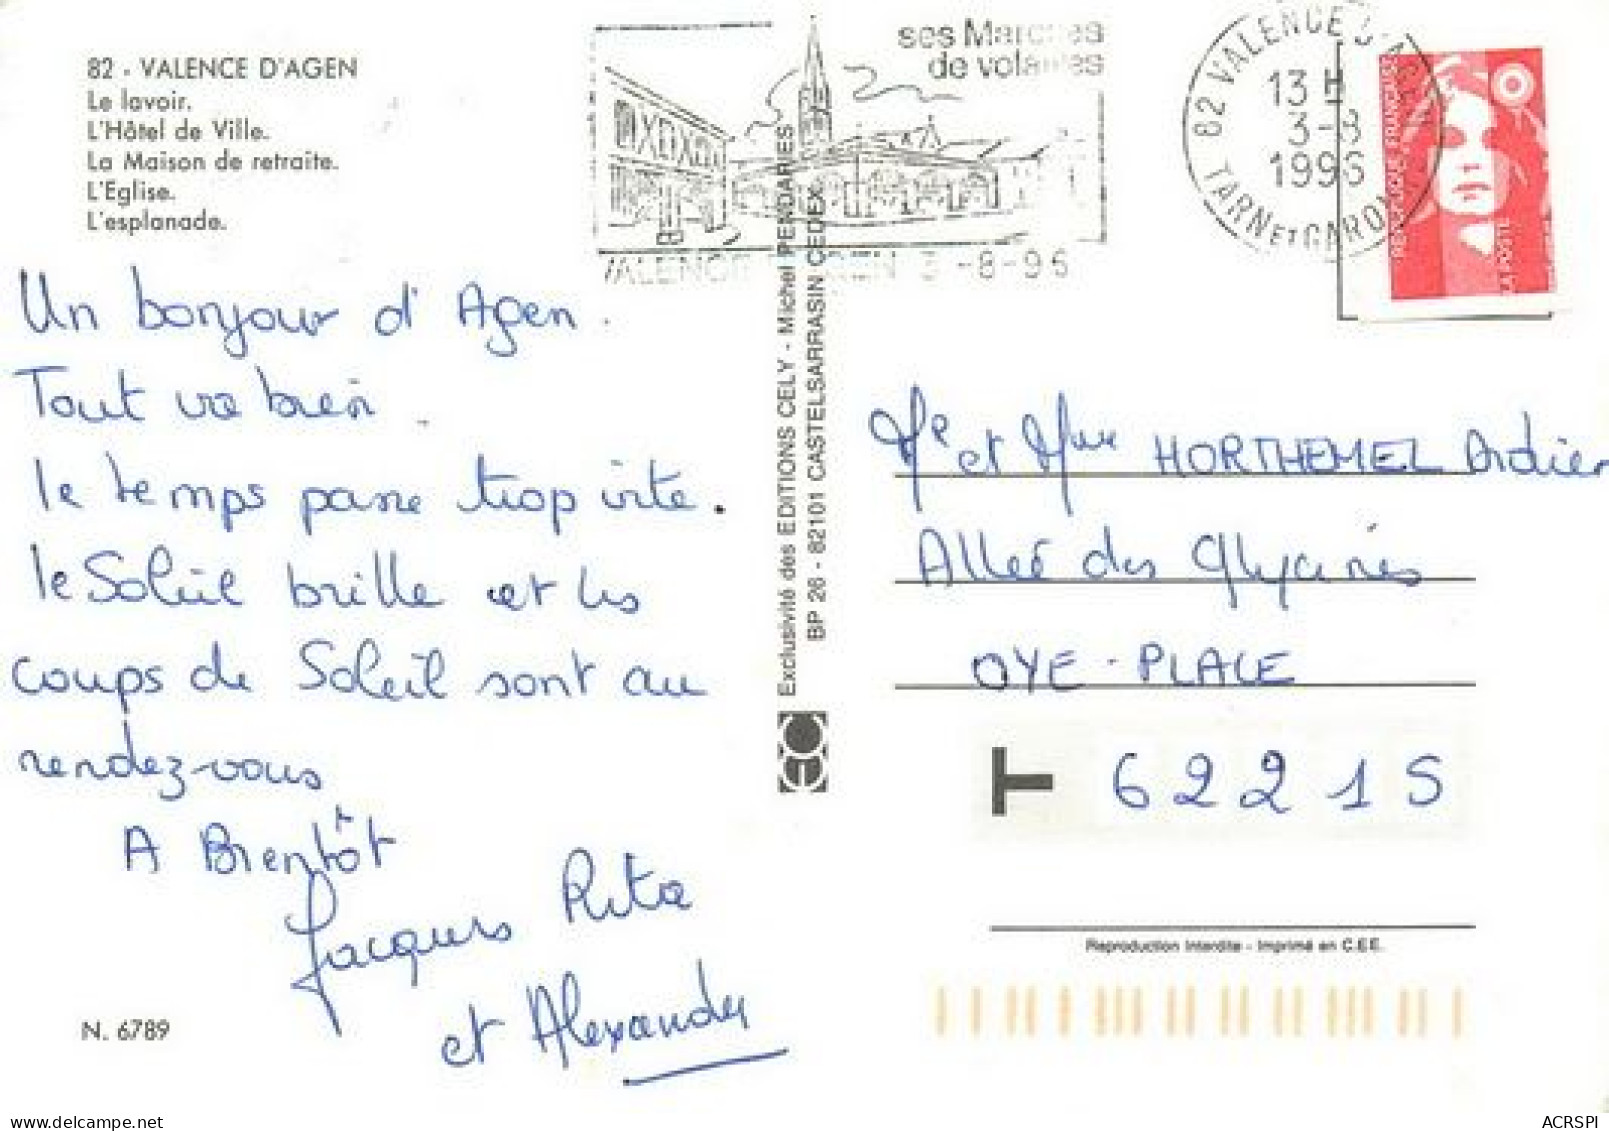 82 - VALENCE D'AGEN
Le lavoir.
L'Hôtel de Ville.
La Maison de retraite.
L'Eglise.
L'esplanade.
ses Marchés
de volailles
VALENCE D'AGEN 3-8-96
82 VALENCE D'AGEN
13 H
3-8
1996
TARN ET GARONNE
REPUBLIQUE FRANÇAISE
LA POSTE
Un bonjour d'Agen.
Tout va bien.
le temps passe trop vite.
le Soleil brille et les
coups de Soleil sont au
rendez-vous
A Bientôt
Jacques Rita
et Alexandre
N. 6789
Exclusivité des EDITIONS CELY - Michel PENDARIES
BP 26 - 82101 CASTELSARRASIN CEDEX
Mr et Mme HORTHEMEL Didier
Alleé des Glycines
OYE-PLAGE
T 62215
Reproduction Interdite - Imprimé en C.E.E.
delcampe.net
ACRSPI